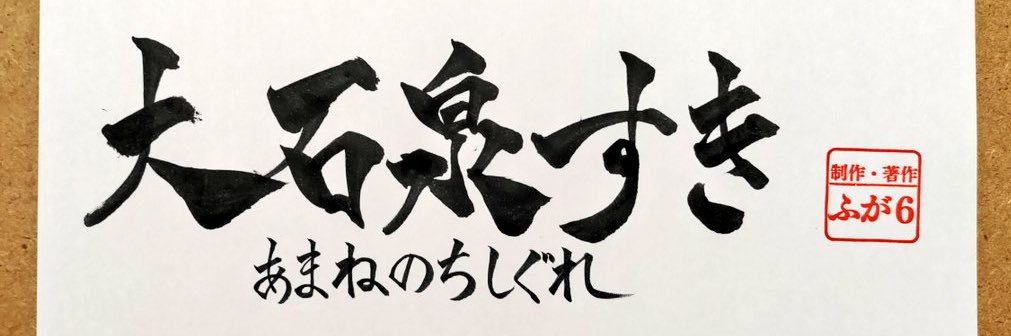 大石泉すき
あまねのちしぐれ
制作・著作
ふが6